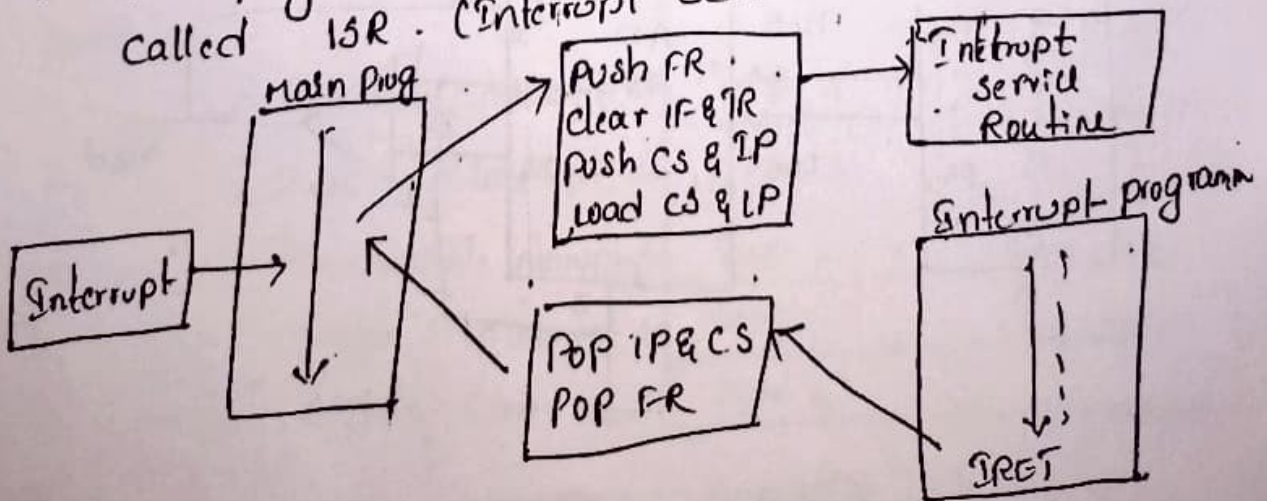 called ISR. (Interrupt
Main prog
Push FR.
clear IF & TR
Push CS & IP
Load CS & IP
Intrupt
service
Routine
Interrupt programm
Interrupt
POP IP & CS
POP FR
IRET